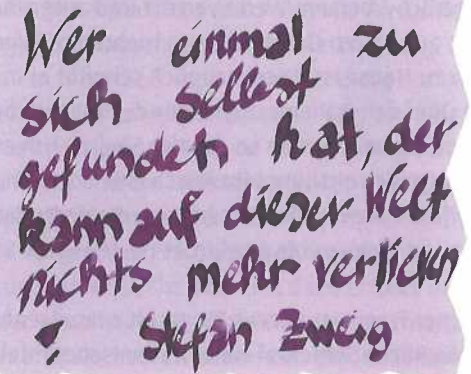 Wer einmal zu
sich selbst
gefunden hat, der
kann auf dieser Welt
nichts mehr verlieren
Stefan Zweig